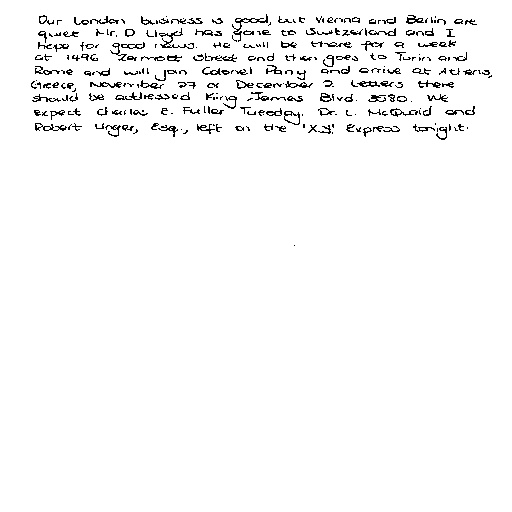 Our London business is good, but Vienna and Berlin are
quiet Mr. D Lloyd has gone to Switzerland and I
hope for good news. He will be there for a week
at 1496 Zermott Street and then goes to Turin and
Rome and will join Colonel Parry and arrive at Athens,
Greece, November 27 or December 2. Letters there
should be addressed King James Blvd. 3580. We
expect Charles E. Fuller Tuesday. Dr. L. McQuaid and
Robert Unger, Esq., left on the 'X.Y.' Express tonight.